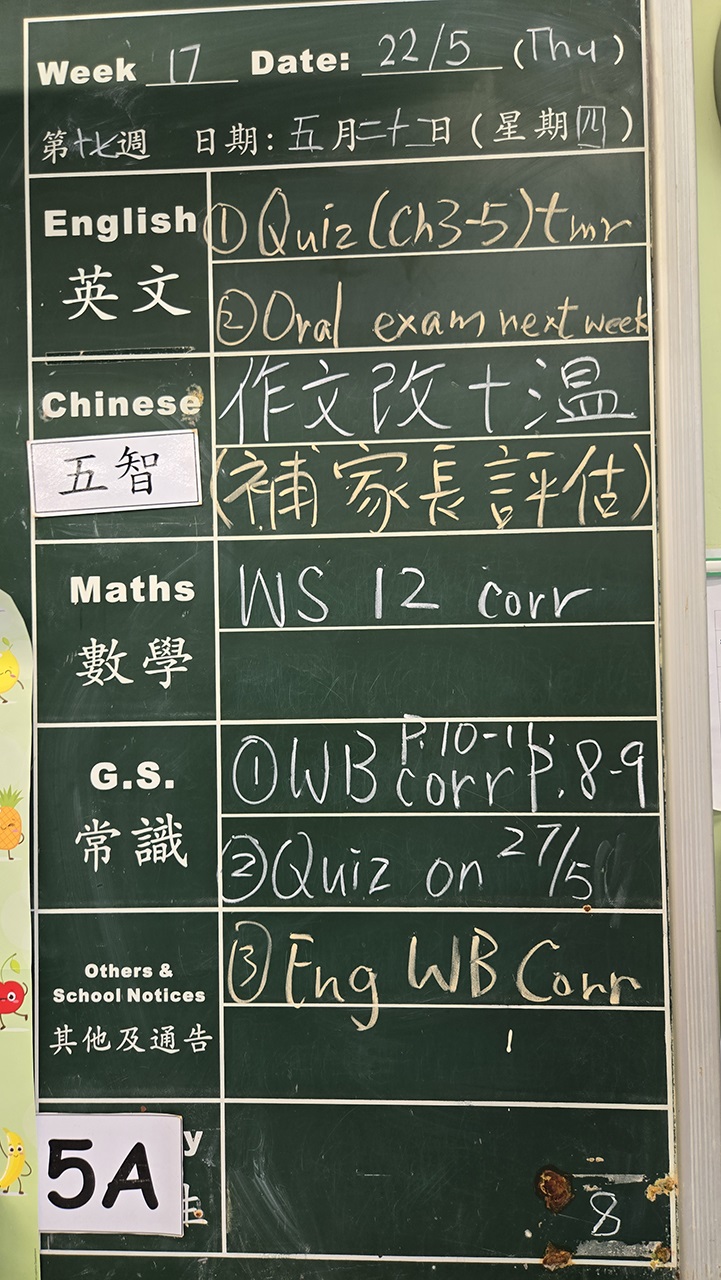 Week 17 Date: 22/5 (Thu)
第十七週 日期: 五月二十二日 (星期四)
English ①Quiz(Ch3-5)tmr
英文 ②Oral exam next week
Chinese 作文改十温
五智 (補家長評估)
Maths WS 12 corr
數學
G.S. ①WB corr P.10-11, P.8-9
常識 ②Quiz on 27/5
Others & ③Eng WB Corr
School Notices
其他及通告
5A y
8